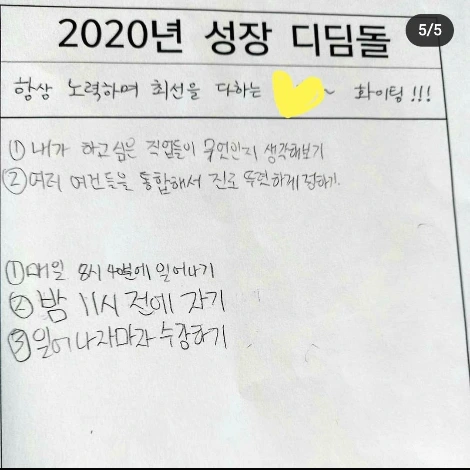 2020년 성장 디딤돌
5/5
항상 노력하며 최선을 다하는 ~ 화이팅!!!
① 내가 하고싶은 직업들이 무엇인지 생각해보기
② 여러 여건들을 통합해서 진로 뚜렷하게 정하기.
① 매일 8시 에 일어나기
② 밤 11시 전에 자기
③ 일어나자마자 수강하기